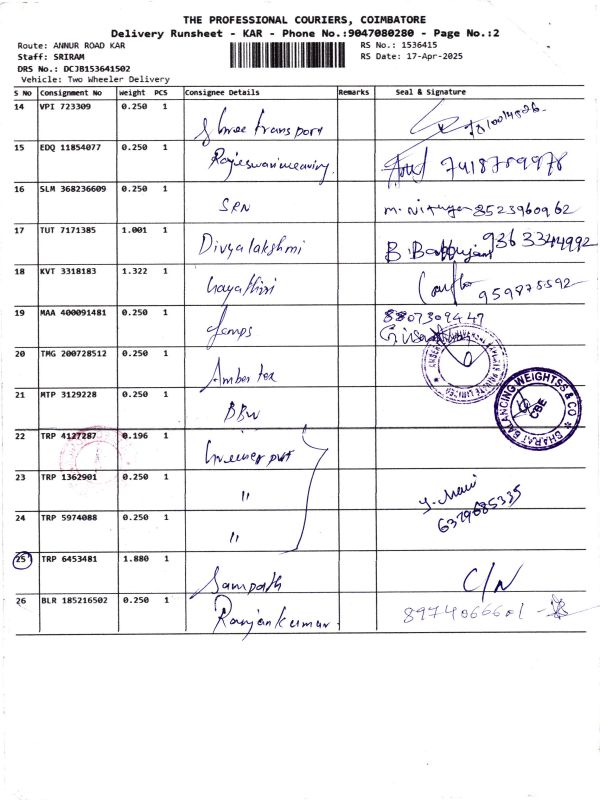 THE PROFESSIONAL COURIERS, COIMBATORE
Delivery Runsheet - KAR - Phone No.:9047080280 - Page No.:2
Route: ANNUR ROAD KAR RS No.: 1536415
Staff: SRIRAM RS Date: 17-Apr-2025
DRS No.: DCJB153641502
Vehicle: Two Wheeler Delivery
S No Consignment No Weight PCS Consignee Details Remarks Seal & Signature
14 VPI 723309 0.250 1
Shree transport
15 EDQ 11854077 0.250 1
Rajeswari weaving 7418759978
16 SLM 368236609 0.250 1
SRN 8523960962
17 TUT 7171385 1.001 1
Divyalakshmi 9363344992
18 KVT 3318183 1.322 1
Gayathiri 959875592
19 MAA 400091481 0.250 1 8807309447
20 TMG 200728512 0.250 1
Amber tex
21 MTP 3129228 0.250 1
BBW
BHARAT BALANCING WEIGHTSS & CO
CBE
22 TRP 4127287 0.196 1
23 TRP 1362901 0.250 1
"
24 TRP 5974088 0.250 1 6379685335
"
25 TRP 6453481 1.880 1
Sampath C/N
26 BLR 185216502 0.250 1
Ranjankumar